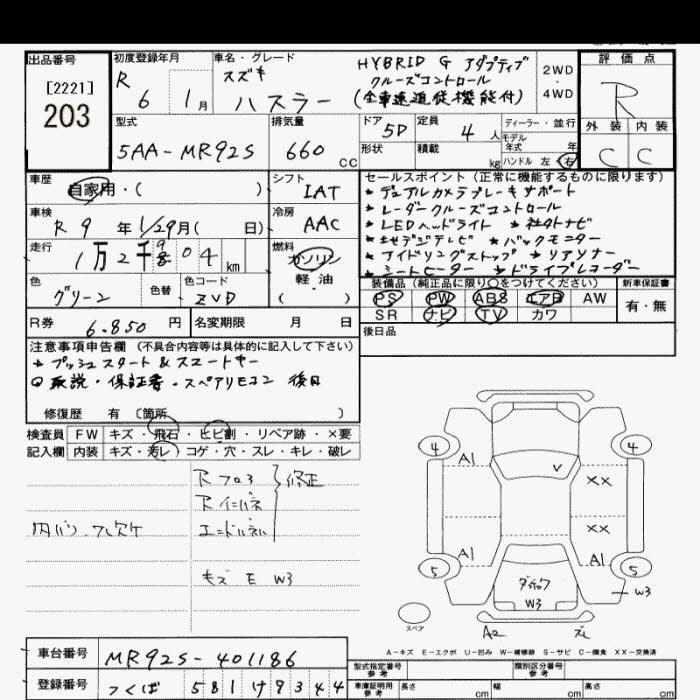 出品番号
[2221]
203
初度登録年月
R 6 1月
車名・グレード
スズキ
ハスラー
HYBRID G アダプティブ
クルーズコントロール
(全車速追従機能付)
2WD
・
4WD
評価点
R
外装 内装
C C
型式
5AA-MR92S
排気量
660 CC
ドア 5D
形状
定員 4人
積載 kg
ディーラー・並行
モデル
年式 年
ハンドル 左 右
車歴
自家用・( )
シフト
IAT
車検
R 9 年 1/29月( 日)
冷房
AAC
走行
1万2千804 km
燃料
ガソリン
軽・油
( )
色
グリーン
色替
色コード
ZVD
R券 6.850 円
名変期限 月 日
セールスポイント(正常に機能するものに限ります)
★デュアルカメラブレーキサポート
★レーダークルーズコントロール
★LEDヘッドライト ★社外ナビ
★地デジテレビ ★バックモニター
★アイドリングストップ ★リアソナー
★シートヒーター ★ドライブレコーダー
装備品(純正品に限り○をつけてください)
PS PW ABS エアB AW
SR ナビ TV カワ
新車保証書
有・無
後日品
注意事項申告欄(不具合内容等は具体的に記入して下さい)
★プッシュスタート&スマートキー
◎取説・保証書・スペアリモコン 後日
修復歴 有 〔箇所 〕
検査員
記入欄
FW キズ・飛石・ヒビ割・リペア跡・×要
内装 キズ・汚レ・コゲ・穴・スレ・キレ・破レ
Rフロア
Rインパネ
エンドパネル
修正
キズ E W3
4 4
A1
V
XX
XX
A1 A1
5 5
W3
W3
A2
スペア
A-キズ E-エクボ U-凹み W-補修跡 S-サビ C-腐食 XX-交換済
車台番号 MR92S-401186
登録番号 つくば 581 け 9344
型式指定番号
参考
類別区分番号
参考
車庫証明用
参考
長さ cm 幅 cm 高さ cm